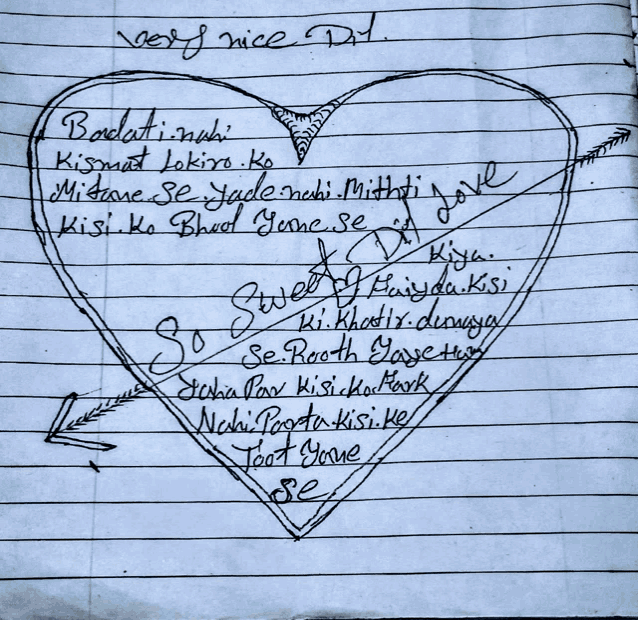 very nice Dil.
Badati.nahi
Kismat Lokiro.Ko
Mitane.Se.Yade.nahi.Mithti
Kisi.Ko Bhool Yane.se
So Sweet Dil Love
Kiya.
Faiyda.Kisi
Ki.Khatir.dunaya
Se.Rooth Yaye Hum
Yaha Par Kisi.Ko.Fark
Nahi.Parta.Kisi.Ke
Toot Yane
se